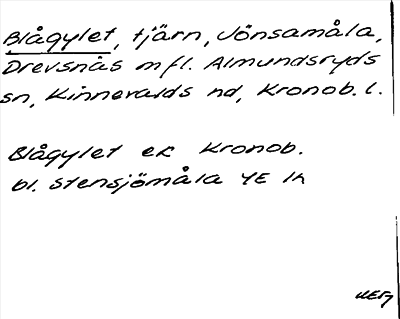 Blågylet, tjärn, Jönsamåla,
Drevsnäs m fl. Almundsryds
sn, Kinnevalds hd, Kronob. l.
Blågylet ek Kronob.
bl. Stensjömåla 4E 1h